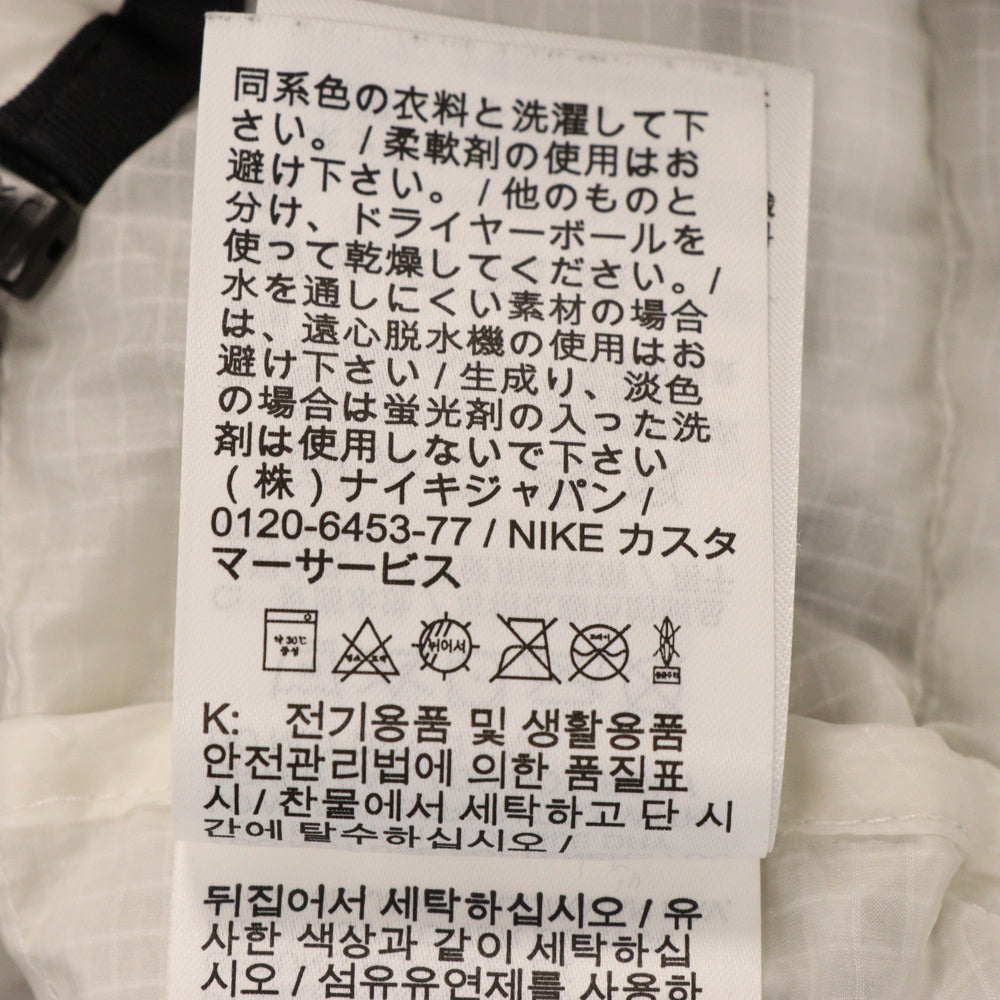 同系色の衣料と洗濯して下
さい。 / 柔軟剤の使用はお
避け下さい。 / 他のものと
分け、ドライヤーボールを
使って乾燥してください。 /
水を通しにくい素材の場合
は、遠心脱水機の使用はお
避け下さい / 生成り、淡色
の場合は蛍光剤の入った洗
剤は使用しないで下さい
(株)ナイキジャパン /
0120-6453-77 / NIKE カスタ
マーサービス
약 30℃
중성
뉘어서
드라이
K: 전기용품 및 생활용품
안전관리법에 의한 품질표
시 / 찬물에서 세탁하고 단 시
간에 탈수하십시오 /
뒤집어서 세탁하십시오 / 유
사한 색상과 같이 세탁하십
시오 / 섬유유연제를 사용하